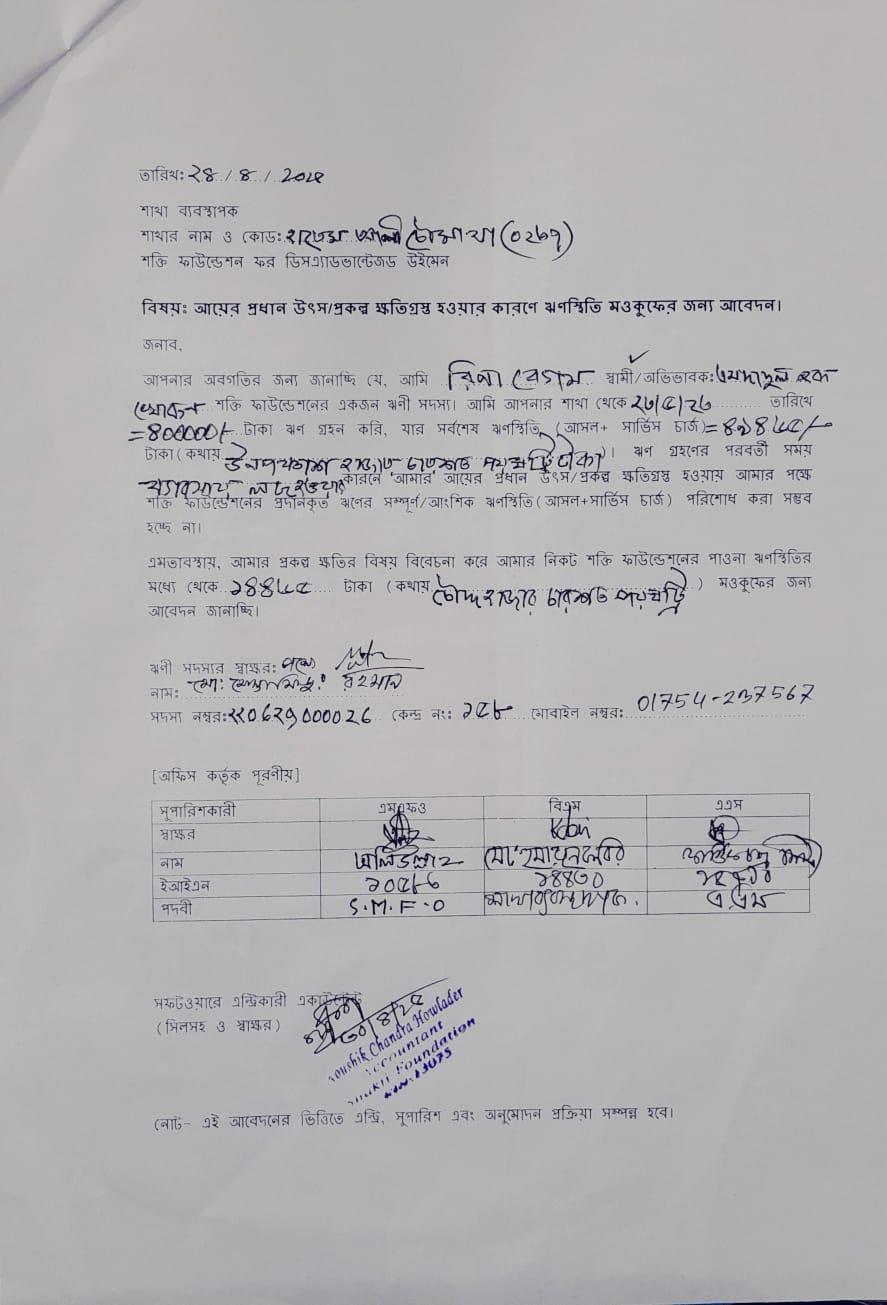 তারিখঃ ২৪/৪/২০২৫
শাখা ব্যবস্থাপক
শাখার নাম ও কোডঃ চৌমাথা (০২৬৭)
শক্তি ফাউন্ডেশন ফর ডিসএ্যাডভান্টেজড উইমেন
বিষয়ঃ আয়ের প্রধান উৎস/প্রকল্প ক্ষতিগ্রস্থ হওয়ার কারণে ঋণস্থিতি মওকুফের জন্য আবেদন।
জনাব,
আপনার অবগতির জন্য জানাচ্ছি যে, আমি রিনা বেগম স্বামী/অভিভাবক: এমদাদুল হক
শক্তি ফাউন্ডেশনের একজন ঋনী সদস্য। আমি আপনার শাখা থেকে তারিখে
=৪০০০০০/- টাকা ঋণ গ্রহন করি, যার সর্বশেষ ঋণস্থিতি (আসল+ সার্ভিস চার্জ)
টাকা (কথায় উনপঞ্চাশ হাজার চারশত পয়ষট্টি টাকা)। ঋণ গ্রহণের পরবর্তী সময়
ব্যবসায় লস হওয়ার কারনে আমার আয়ের প্রধান উৎস/প্রকল্প ক্ষতিগ্রস্থ হওয়ায় আমার পক্ষে
শক্তি ফাউন্ডেশনের প্রদানকৃত ঋণের সম্পূর্ণ/আংশিক ঋণস্থিতি (আসল+সার্ভিস চার্জ) পরিশোধ করা সম্ভব
হচ্ছে না।
এমতাবস্থায়, আমার প্রকল্প ক্ষতির বিষয় বিবেচনা করে আমার নিকট শক্তি ফাউন্ডেশনের পাওনা ঋণস্থিতির
মধ্যে থেকে ১৪৪৬৫ টাকা (কথায় চৌদ্দ হাজার চারশত পয়ষট্টি) মওকুফের জন্য
আবেদন জানাচ্ছি।
ঋনী সদস্যর স্বাক্ষর: পক্ষে
নাম: মো: মোস্তাফিজুর রহমান
সদস্য নম্বর: কেন্দ্র নং: ১৫৮ মোবাইল নম্বর: 01754-237567
[অফিস কর্তৃক পূরণীয়]
সুপারিশকারী এমএফও বিএম এএস
স্বাক্ষর
নাম অলিউল্লাহ মো: হুমায়ুন কবির
ইআইএন ১০৫৮৬ ১৪৪৩০
পদবী S.M.F.O শাখা ব্যবস্থাপক. এ এস
সফটওয়ারে এন্ট্রিকারী একাউন্টেন্ট
(সিলসহ ও স্বাক্ষর)
Koushik Chandra Howlader
Accountant
Shakti Foundation
EIN-13075
নোট- এই আবেদনের ভিত্তিতে এন্ট্রি, সুপারিশ এবং অনুমোদন প্রক্রিয়া সম্পন্ন হবে।